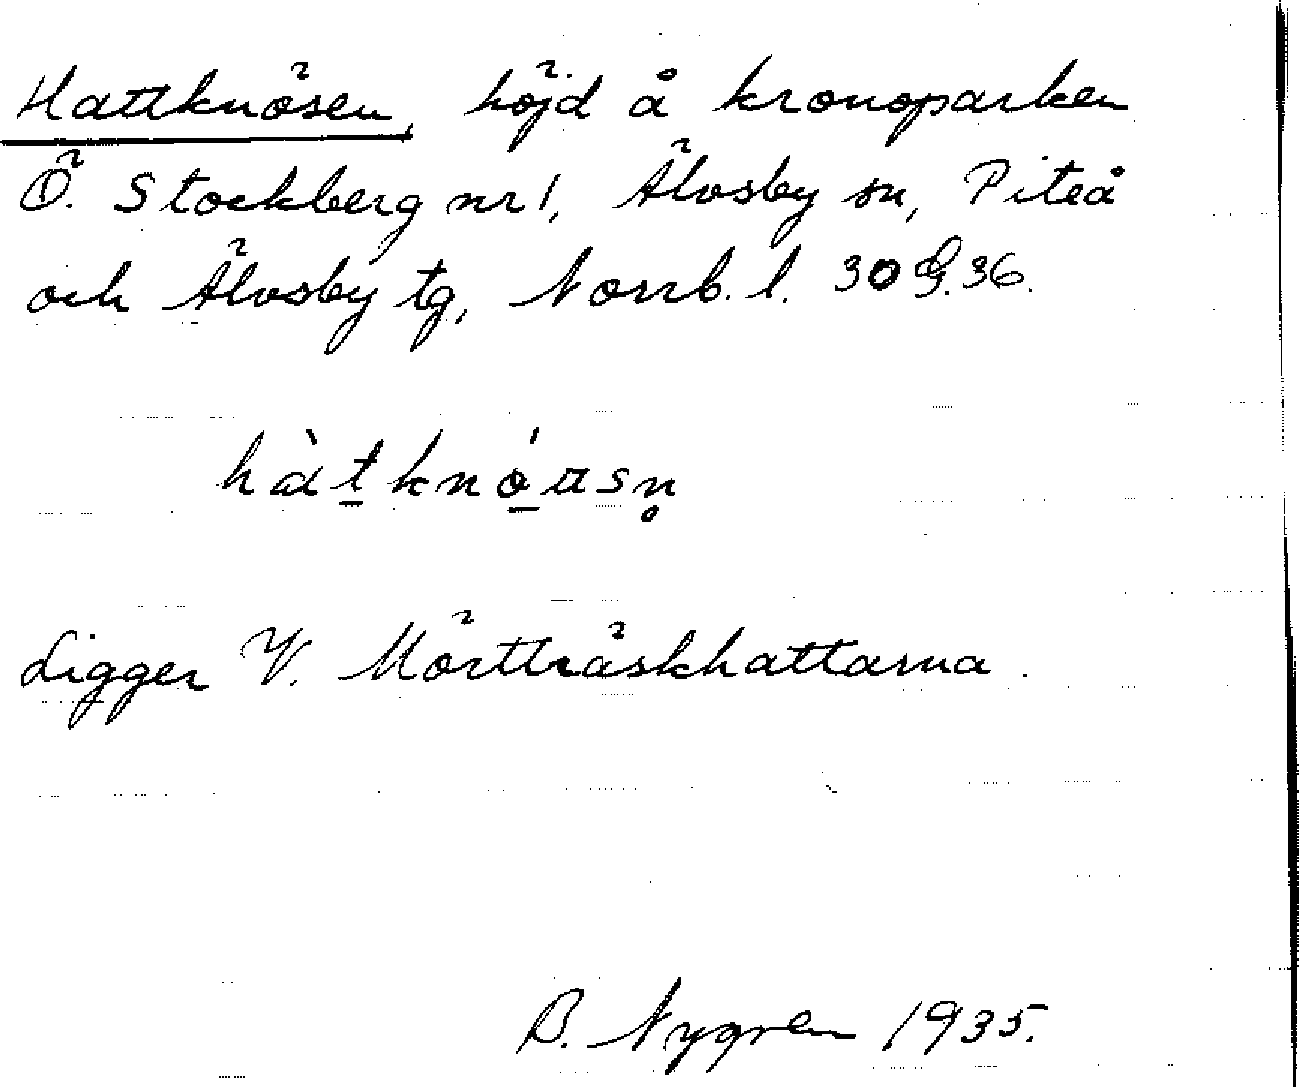 Hattknösen, höjd å kronoparken
Ö. Stockberg nr 1, Älvsby sn, Piteå
och Älvsby tg, Norrb. l. 30 G. 36.
hàt̠knó̠ɑsn̥
Ligger V. Mörtträskhattarna.
B. Nygren 1935.